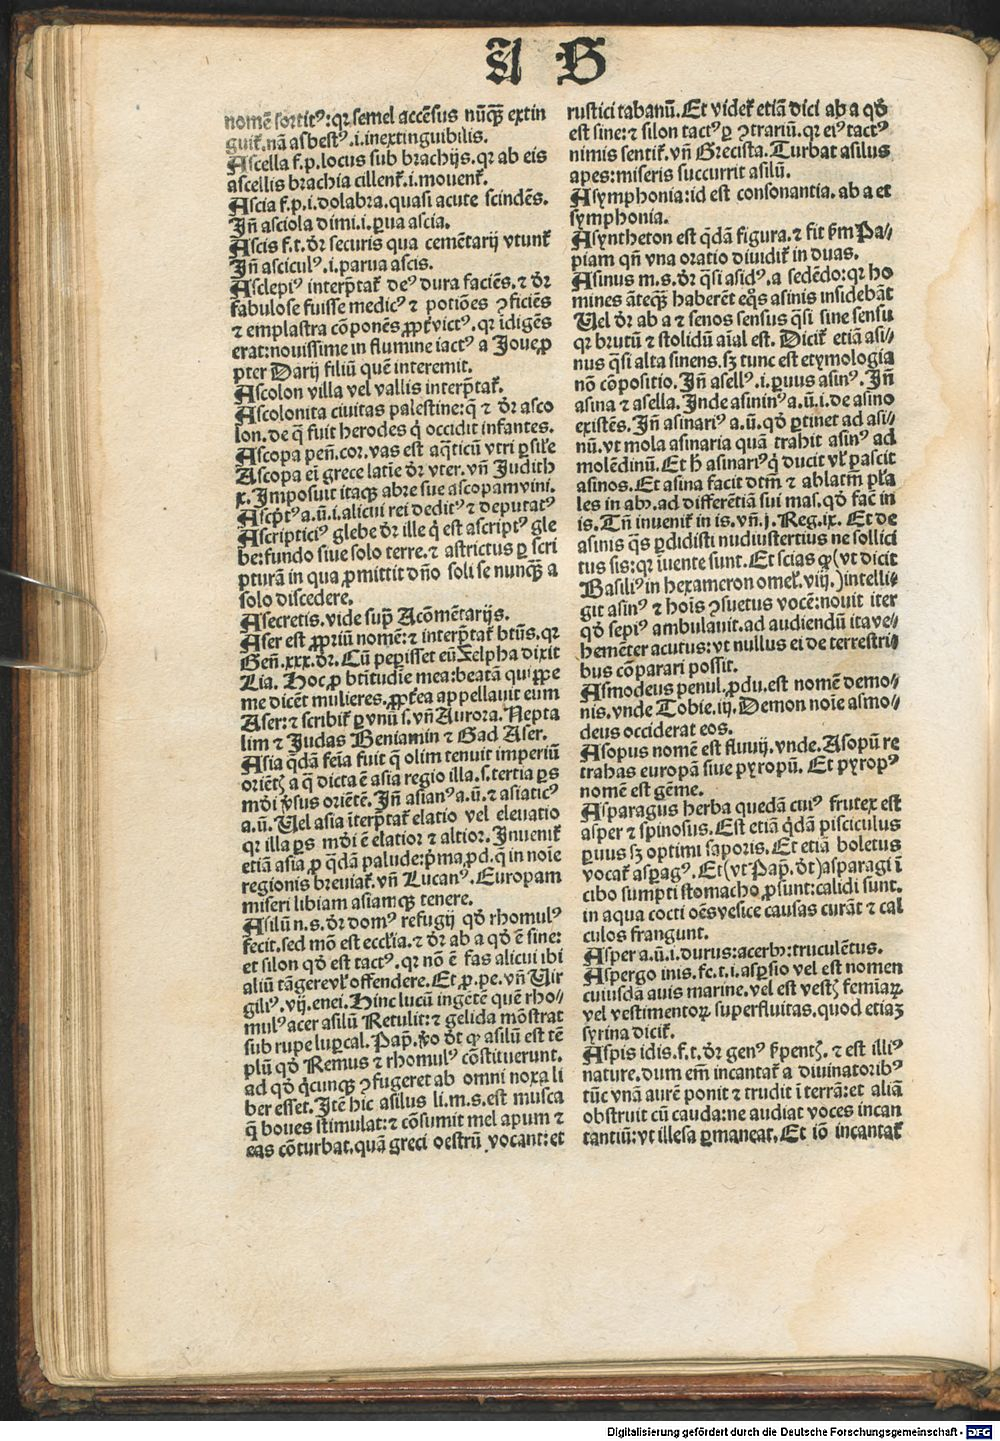 A S
nomē sortitꝰ: qꝛ semel accēsus nūqꝫ extin
guit̄. nā asbestꝰ .i. inextinguibilis.
Ascella f.p. locus sub brachijs. qꝛ ab eis
ascellis brachia cillent̄ .i. mouent̄.
Ascia f.p.i. dolabra. quasi acute scindēs.
Jn̄ asciola dimi.i. ꝑua ascia.
Ascis f.t. dr̄ securis qua cemētarij vtunt̄
Jn̄ asciculꝰ .i. parua ascis.
Asclepiꝰ interp̄tat̄ deꝰ dura faciēs. ⁊ dr̄
fabulose fuisse medicꝰ ⁊ potiōes ꝯficiēs
⁊ emplastra cōponēs
erat: nouissime in flumine iactꝰ a Joue, ꝓ
pter Darij filiū quē interemit.
Ascolon villa vel vallis interp̄tat̄.
Ascolonita ciuitas palestine: q̄ ⁊ dr̄ asco
lon. de q̄ fuit herodes q̇ occidit infantes.
Ascopa pen̄. cor. vas est aq̄ticū vtri ꝑsil̄e
Ascopa ei̅ grece latīe dr̄ vter. vn̄ Judith
x. Imposuit itaqꝫ abre sue ascopam vini.
Ascp̄tꝰ a.ū.i. alicui rei deditꝰ ⁊ deputatꝰ
Ascripticiꝰ glebe dr̄ ille q̇ est ascriptꝰ gle
be: fundo siue solo terre. ⁊ astrictus ꝑ scri
pturā in qua ꝓmittit dn̄o soli se nunqꝫ a
solo discedere.
Asecretis. vide supͣ Acōmētarijs.
Aser est ꝓpriū nomē: ⁊ interp̄tat̄ btūs. qꝛ
Gen̄. xxx. dr̄. Cū peꝑisset eū Zelpha dixit
Lia. Hoc ꝓ btitudīe mea: beatā quippe
me dicēt mulieres. ꝓpt̄ea appellauit eum
Aser: ⁊ scribit̄ ꝑ vnū s. vn̄ Aurora. Nepta
lim ⁊ Judas Beniamin ⁊ Gad Aser.
Asia q̄dā feīa fuit q̄ olim tenuit imperiū
oriētꝭ a q̄ dicta ē asia regio illa .s. tertia ꝑs
mōi ꝟsus oriētē. Jn̄ asianꝰ a.ū. ⁊ asiaticꝰ
a.ū. Vel asia īterp̄tat̄ elatio vel eleuatio
qꝛ illa ꝑs mōi ē elatior ⁊ altior. Inuenit̄
etiā asia ꝓ q̄dā palude: p̄ma, ꝓd. q̄ in noīe
regionis breuiat̄. vn̄ Lucanꝰ. Europam
miseri libiam asiamqꝫ tenere.
Asilū n.s. dr̄ domꝰ refugij qd̄ rhomulꝰ
fecit. sed mō est eccl̄ia. ⁊ dr̄ ab a qd̄ ē sine:
et silon qd̄ est tactꝰ. qꝛ nō ē fas alicui ibi
aliū tāgere vl̓ offendere. Et ꝓ. pe. vn̄ Vir
giliꝰ .vij. enei. Hinc lucū ingētē quē rho⸗
mulꝰ acer asilū Retulit: ⁊ gelida mōstrat
sub rupe luꝑcal. Pap̄. ꝟo dt̄ qͥ asilū est tē
plū qd̄ Remus ⁊ rhomulꝰ cōstituerunt.
ad qd̄ q̇cunqꝫ ꝯfugeret ab omni noxa li
ber esset. Itē hic asilus li. m.s. est musca
q̄ boues stimulat: ⁊ cōsumit mel apum ⁊
eas cōturbat. quā greci oestrū vocant: et
rustici tabanū. Et videt̄ etiā dici ab a qd̄
est sine: ⁊ silon tactꝰ ꝑ ꝯtrariū. qꝛ eiꝰ tactꝰ
nimis sentit̄. vn̄ Grecista. Turbat asilus
apes: miseris succurrit asilū.
Asymphonia: id est consonantia. ab a et
symphonia.
Asyntheton est q̄dā figura. ⁊ fit ẜm Pa⸗
piam qn̄ vna oratio diuidit̄ in duas.
Asinus m.s. dr̄ q̄si asidꝰ. a sedēdo: qꝛ ho
mines āteqꝫ haberēt eq̊s asinis insidebāt
Vel dr̄ ab a ⁊ senos sensus q̄si sine sensu
qꝛ brutū ⁊ stolidū aīal est. Dicit̄ etiā asi⸗
nus q̄si alta sinens. sꝫ tunc est etymologia
nō cōpositio. Jn̄ asellꝰ .i. ꝑuus asinꝰ. Jn̄
asina ⁊ asella. Inde asininꝰ a.ū.i. de asino
existēs. Jn̄ asinariꝰ a.ū. qd̄ ꝑtinet ad asi⸗
nū. vt mola asinaria quā trahit asinꝰ ad
molēdinū. Et h̄ asinariꝰ q̇ ducit vl̓ pascit
asinos. Et asina facit dtm̄ ⁊ ablatm̄ pl̄a
les in abꝫ. ad differētiā sui mas. qd̄ fac̄ in
is. Tn̄ inuenit̄ in is. vn̄ .j. Reg. ix. Et de
asinis q̄s ꝑdidisti nudiustertius ne sollici
tus sis: qꝛ iuente sunt. Et scias qͥ (vt dicit
Basiliꝰ in hexameron omel̓. viij.) intelli⸗
git asinꝰ ⁊ hoīs ꝯsuetus vocē: nouit iter
qd̄ sepiꝰ ambulauit. ad audiendū ita ve⸗
hemēter acutus: vt nullus ei de terrestri⸗
bus cōparari possit.
Asmodeus penul. ꝓdu. est nomē demo⸗
nis. vnde Tobie. iij. Demon noīe asmo⸗
deus occiderat eos.
Asopus nomē est fluuij. vnde. Asopū re
trahas europā siue pyropū. Et pyropꝰ
nomē est gēme.
Asparagus herba quedā cuiꝰ frutex est
asper ⁊ spinosus. Est etiā q̇dā pisciculus
ꝑuus sꝫ optimi saporis. Et etiā boletus
vocat̄ asꝑagꝰ. Et (vt Pap̄. dt̄) asparagi ī
cibo sumpti stomacho ꝓsunt: calidi sunt.
in aqua cocti oēs vesice causas curāt ⁊ cal
culos frangunt.
Asper a.ū.i. durus: acerbꝰ: truculētus.
Aspergo inis. fe. t.i. asꝑsio vel est nomen
cuiusdā auis marine. vel est vestꝭ femīaꝝ
vel vestimentoꝝ superfluitas. quod etiaꝫ
syrina dicit̄.
Aspis idis. f.t. dr̄ genꝰ ẜpentꝭ. ⁊ est illiꝰ
nature. dum em̄ incantat̄ a diuinatoribꝰ
tūc vnā aurē ponit ⁊ trudit ī terrā: et aliā
obstruit cū cauda: ne audiat voces incan
tantiū: vt illesa ꝑmaneat. Et iō incantat̄
Digitalisierung gefördert durch die Deutsche Forschungsgemeinschaft - DFG